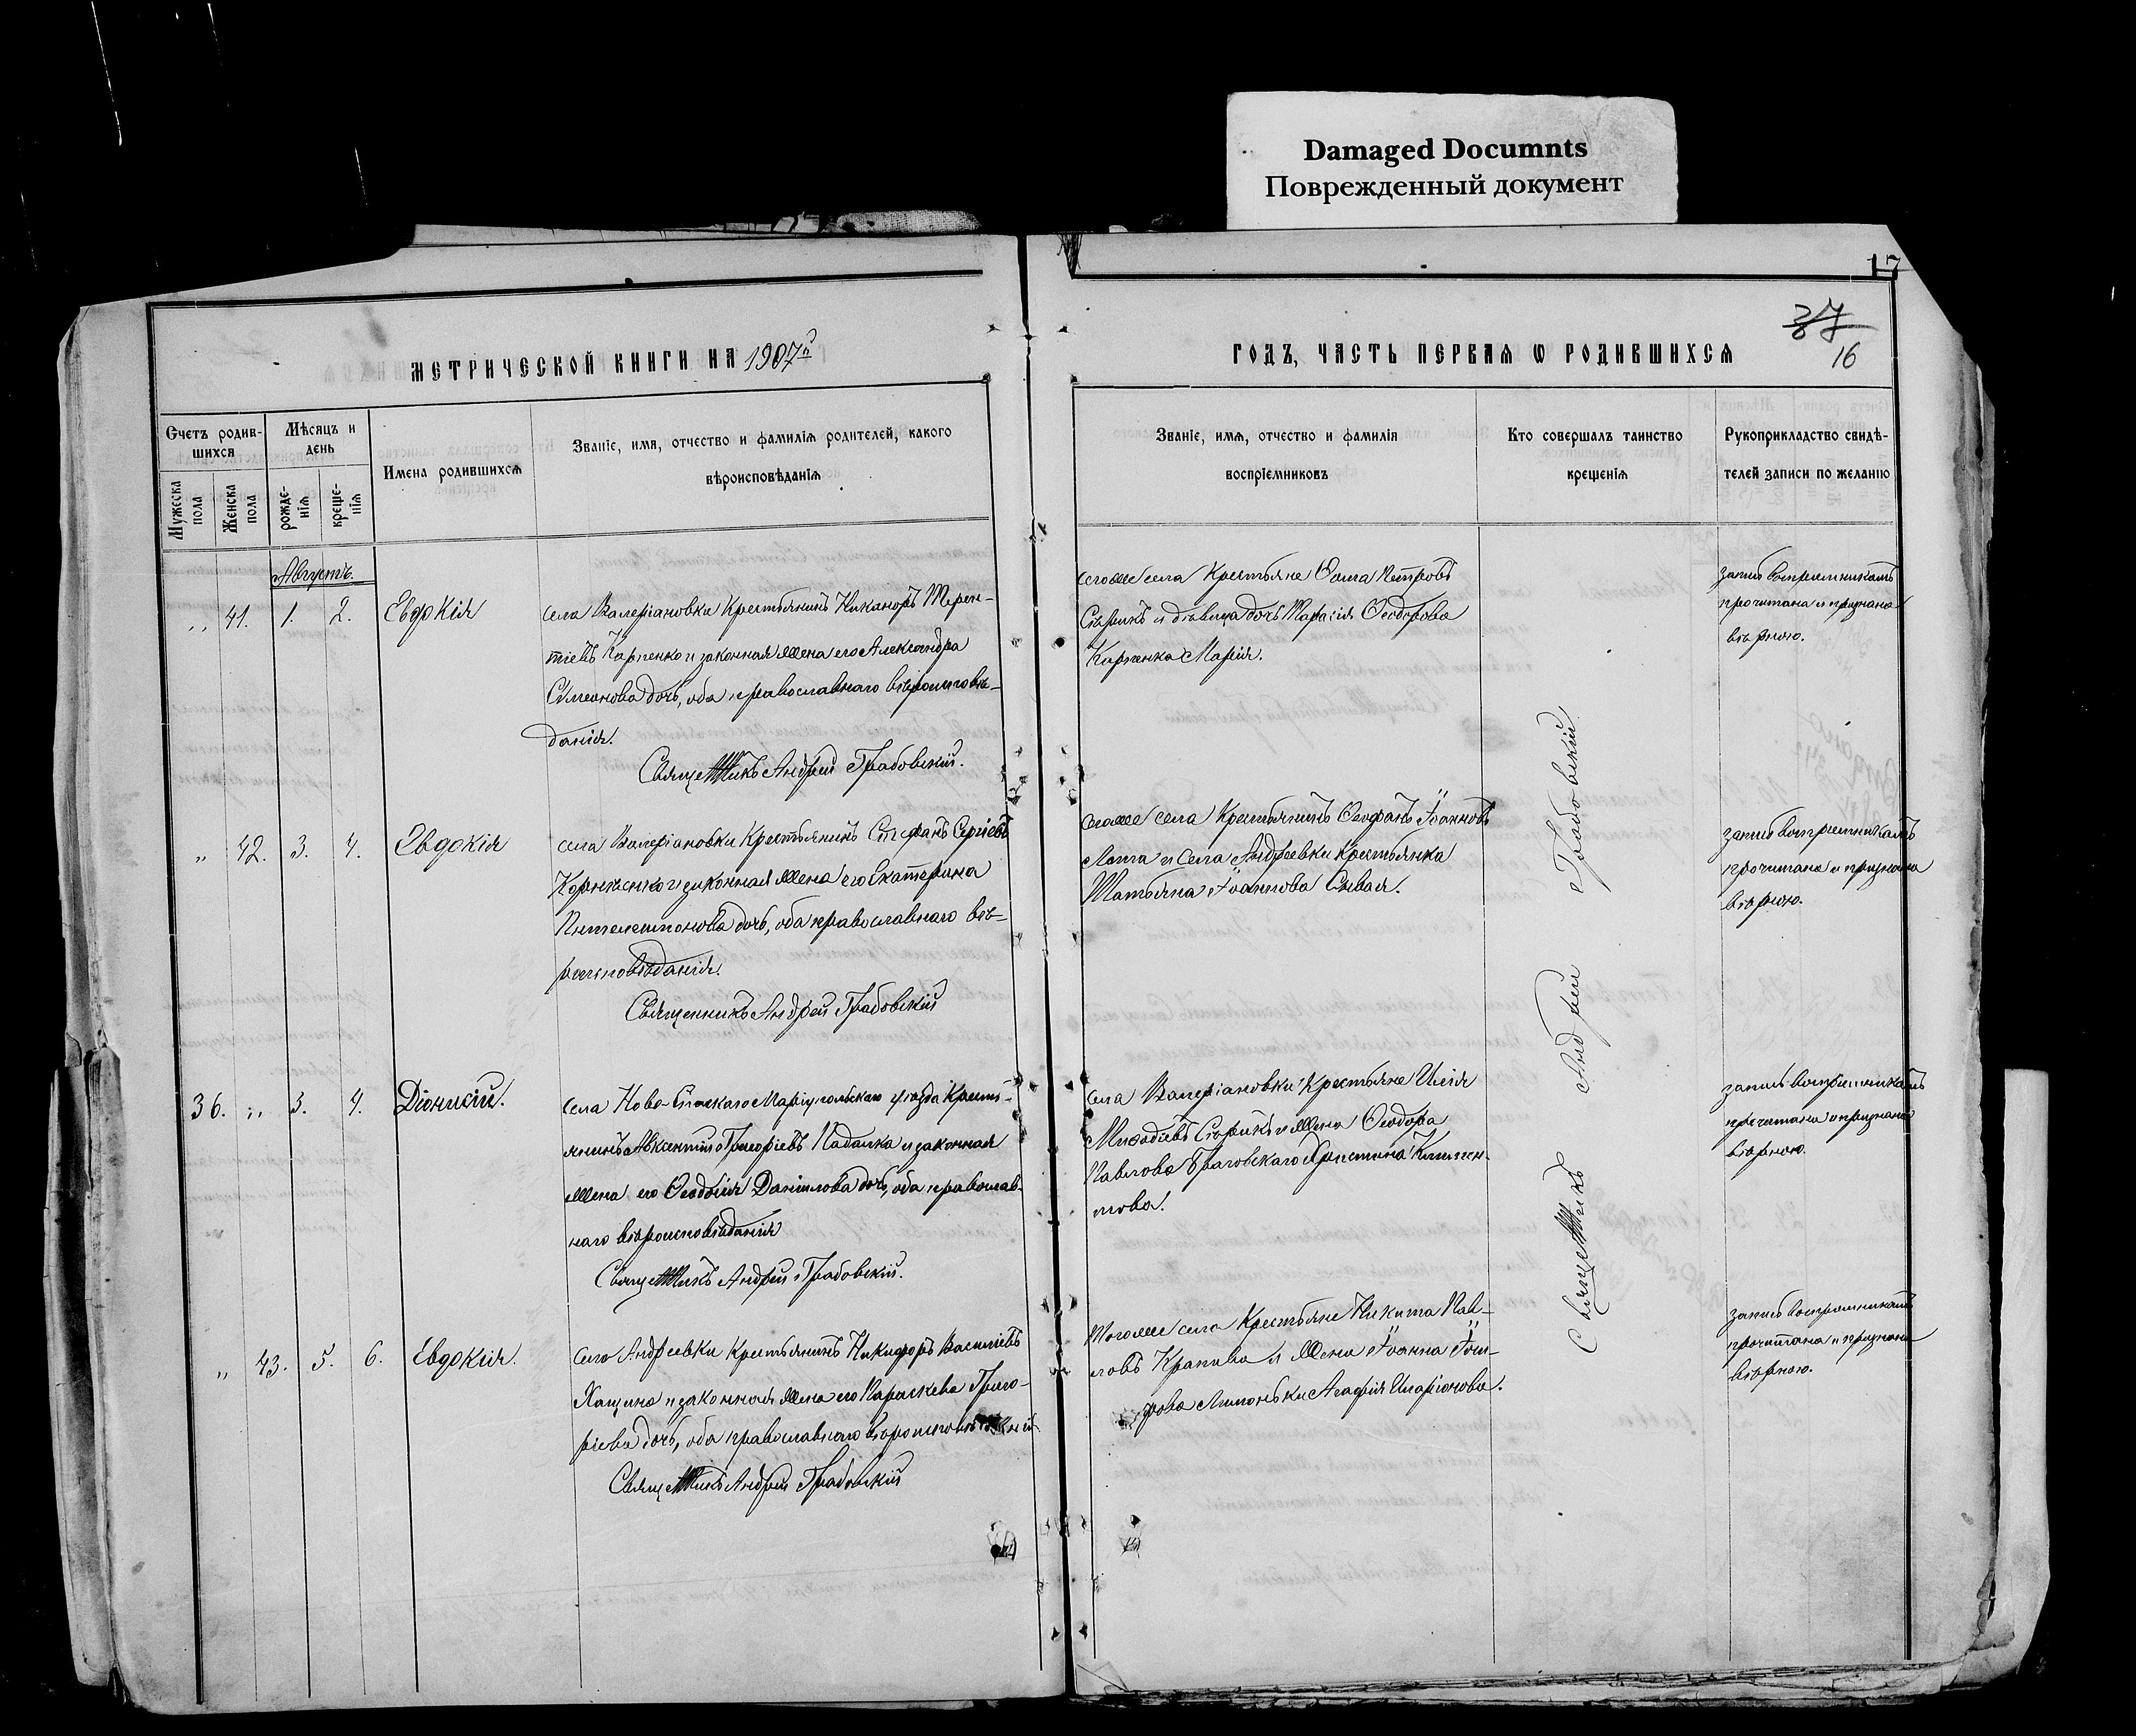 Damaged Documnts
Поврежденный документ
17
37
16
МЕТРИЧЕСКОЙ КНИГИ НА 1907й
ГОДЪ, ЧАСТЬ ПЕРВАЯ Ѡ РОДИВШИХСЯ
Счетъ родив-
шихся
Мѣсяцъ и
день
Имена родившихся
Званіе, имя, отчество и фамилія родителей, какого
вѣроисповѣданія
Мужеска
пола
Женска
пола
рожде-
нія
креще-
нія
Званіе, имя, отчество и фамилія
воспріемниковъ
Кто совершалъ таинство
крещенія
Рукоприкладство свидѣ-
телей записи по желанію
Августъ.
„ 41. 1. 2. Евдокія
села Валеріановки Крестьянинъ Никаноръ Терен-
тіевъ Карпенко и законная жена его Александра
Симеонова дочь, оба православнаго вѣроисповѣ-
данія.
Священникъ Андрей Грабовскій.
сего же села Крестьяне Ѳома Петровъ
Сѣрикъ и дѣвица дочь Тарасія Ѳеодорова
Карпенка Марія.
запись воспріемникамъ
прочитана и признана
вѣрною.
„ 42. 3. 4. Евдокія
села Валеріановки Крестьянинъ Стефанъ Сергіевъ
Корніенко и законная жена его Екатерина
Пантелеимонова дочь, оба православнаго вѣ-
роисповѣданія.
Священникъ Андрей Грабовскій
сего же села Крестьянинъ Ѳеофанъ Іоанновъ
и села Андреевки Крестьянка
Татьяна Іоаннова
запись воспріемникамъ
прочитана и признана
вѣрною.
36. „ 3. 4. Діонисій.
села Ново- Маріупольскаго уѣзда Кресть-
янинъ Авксентій Григоріевъ Падалка и законная
жена его Ѳеодосія Даніилова дочь, оба православ-
наго вѣроисповѣданія
Священникъ Андрей Грабовскій.
села Валеріановки Крестьяне Илія
Меѳодіевъ Сѣрикъ и жена Ѳеодора
Павлова Христина Климен-
това.
запись воспріемникамъ
прочитана и признана
вѣрною.
„ 43. 5. 6. Евдокія.
села Андреевки Крестьянинъ Никифоръ Василіевъ
Хацуна и законная жена его Параскева Григо-
ріева дочь, оба православнаго вѣроисповѣданія
Священникъ Андрей Грабовскій
того же села Крестьяне Никита Пав-
ловъ Крапива и жена Іоанна
Агафія Иларіонова.
запись воспріемникамъ
прочитана и признана
вѣрною.
Священникъ Андрей Грабовскій